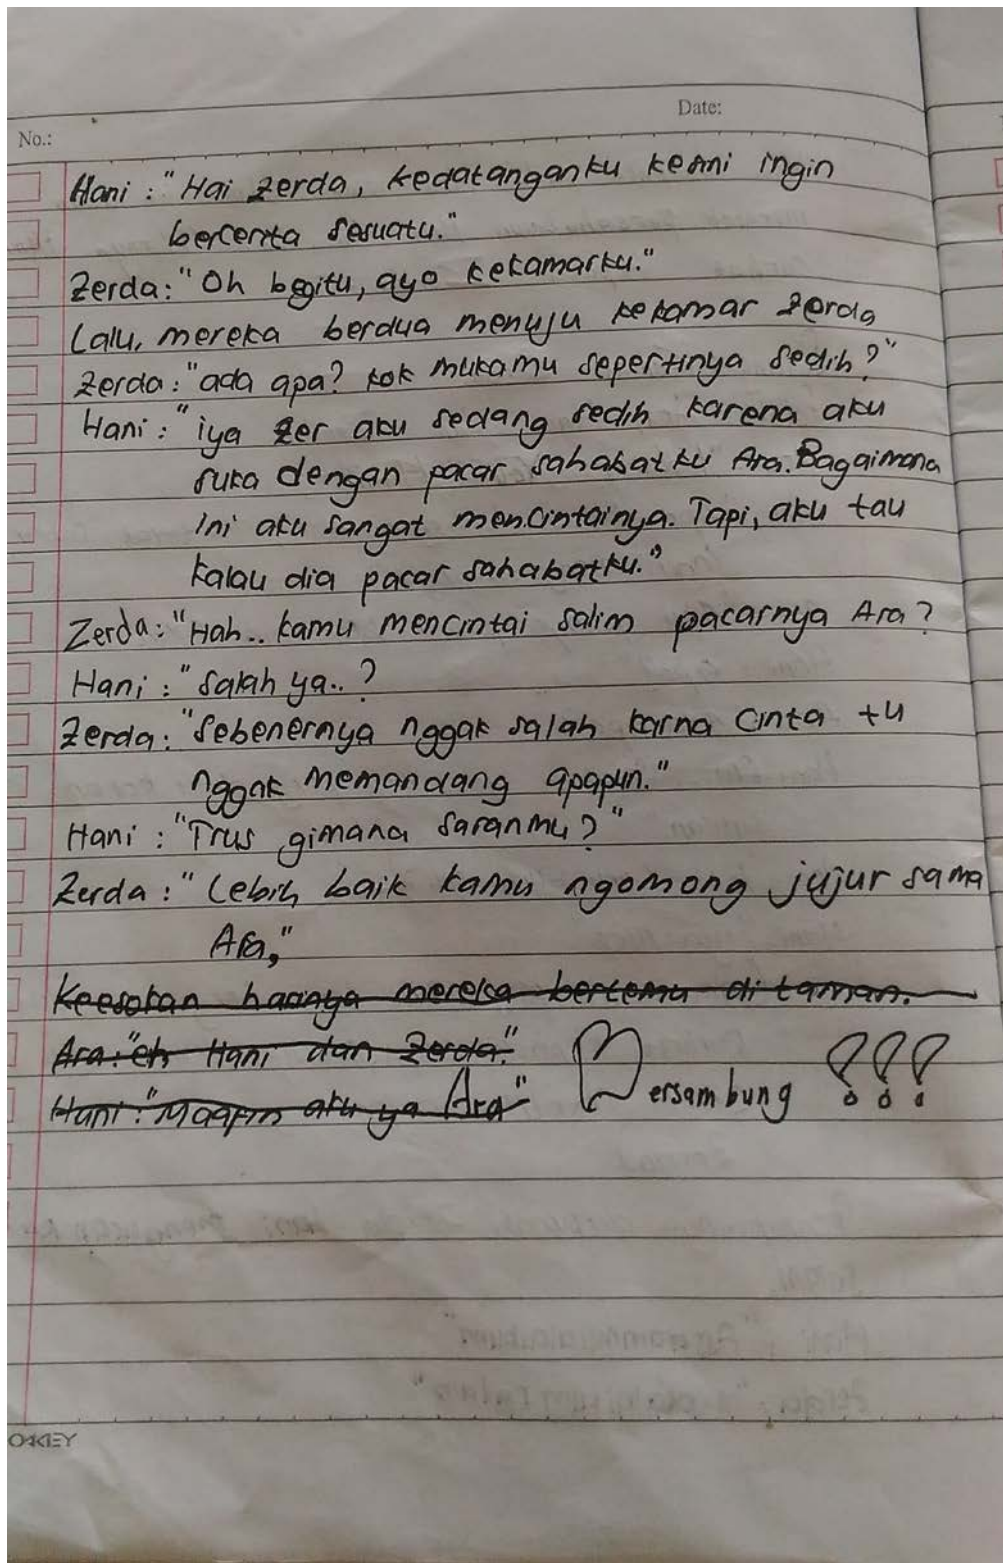 No.:
Date:
Hani : "Hai Zerda, kedatanganku kesini ingin
bercerita sesuatu."
Zerda : "Oh begitu, ayo kekamarku."
Lalu, mereka berdua menuju kekamar Zerda
Zerda : "ada apa? kok mukamu sepertinya sedih?"
Hani : "iya zer aku sedang sedih karena aku
suka dengan pacar sahabatku Ara. Bagaimana
ini aku sangat mencintainya. Tapi, aku tau
kalau dia pacar sahabatku."
Zerda : "Hah.. kamu mencintai salim pacarnya Ara?
Hani : "salah ya..?
Zerda : "Sebenernya nggak salah karna cinta tu
nggak memandang apapun."
Hani : "Trus gimana saranmu?"
Zerda : "Lebih baik kamu ngomong jujur sama
Ara,"
Keesokan harinya mereka bertemu di taman.
Ara : "eh Hani dan Zerda."
Hani : "Maafin aku ya Ara"
Bersambung !!!
OAKLEY